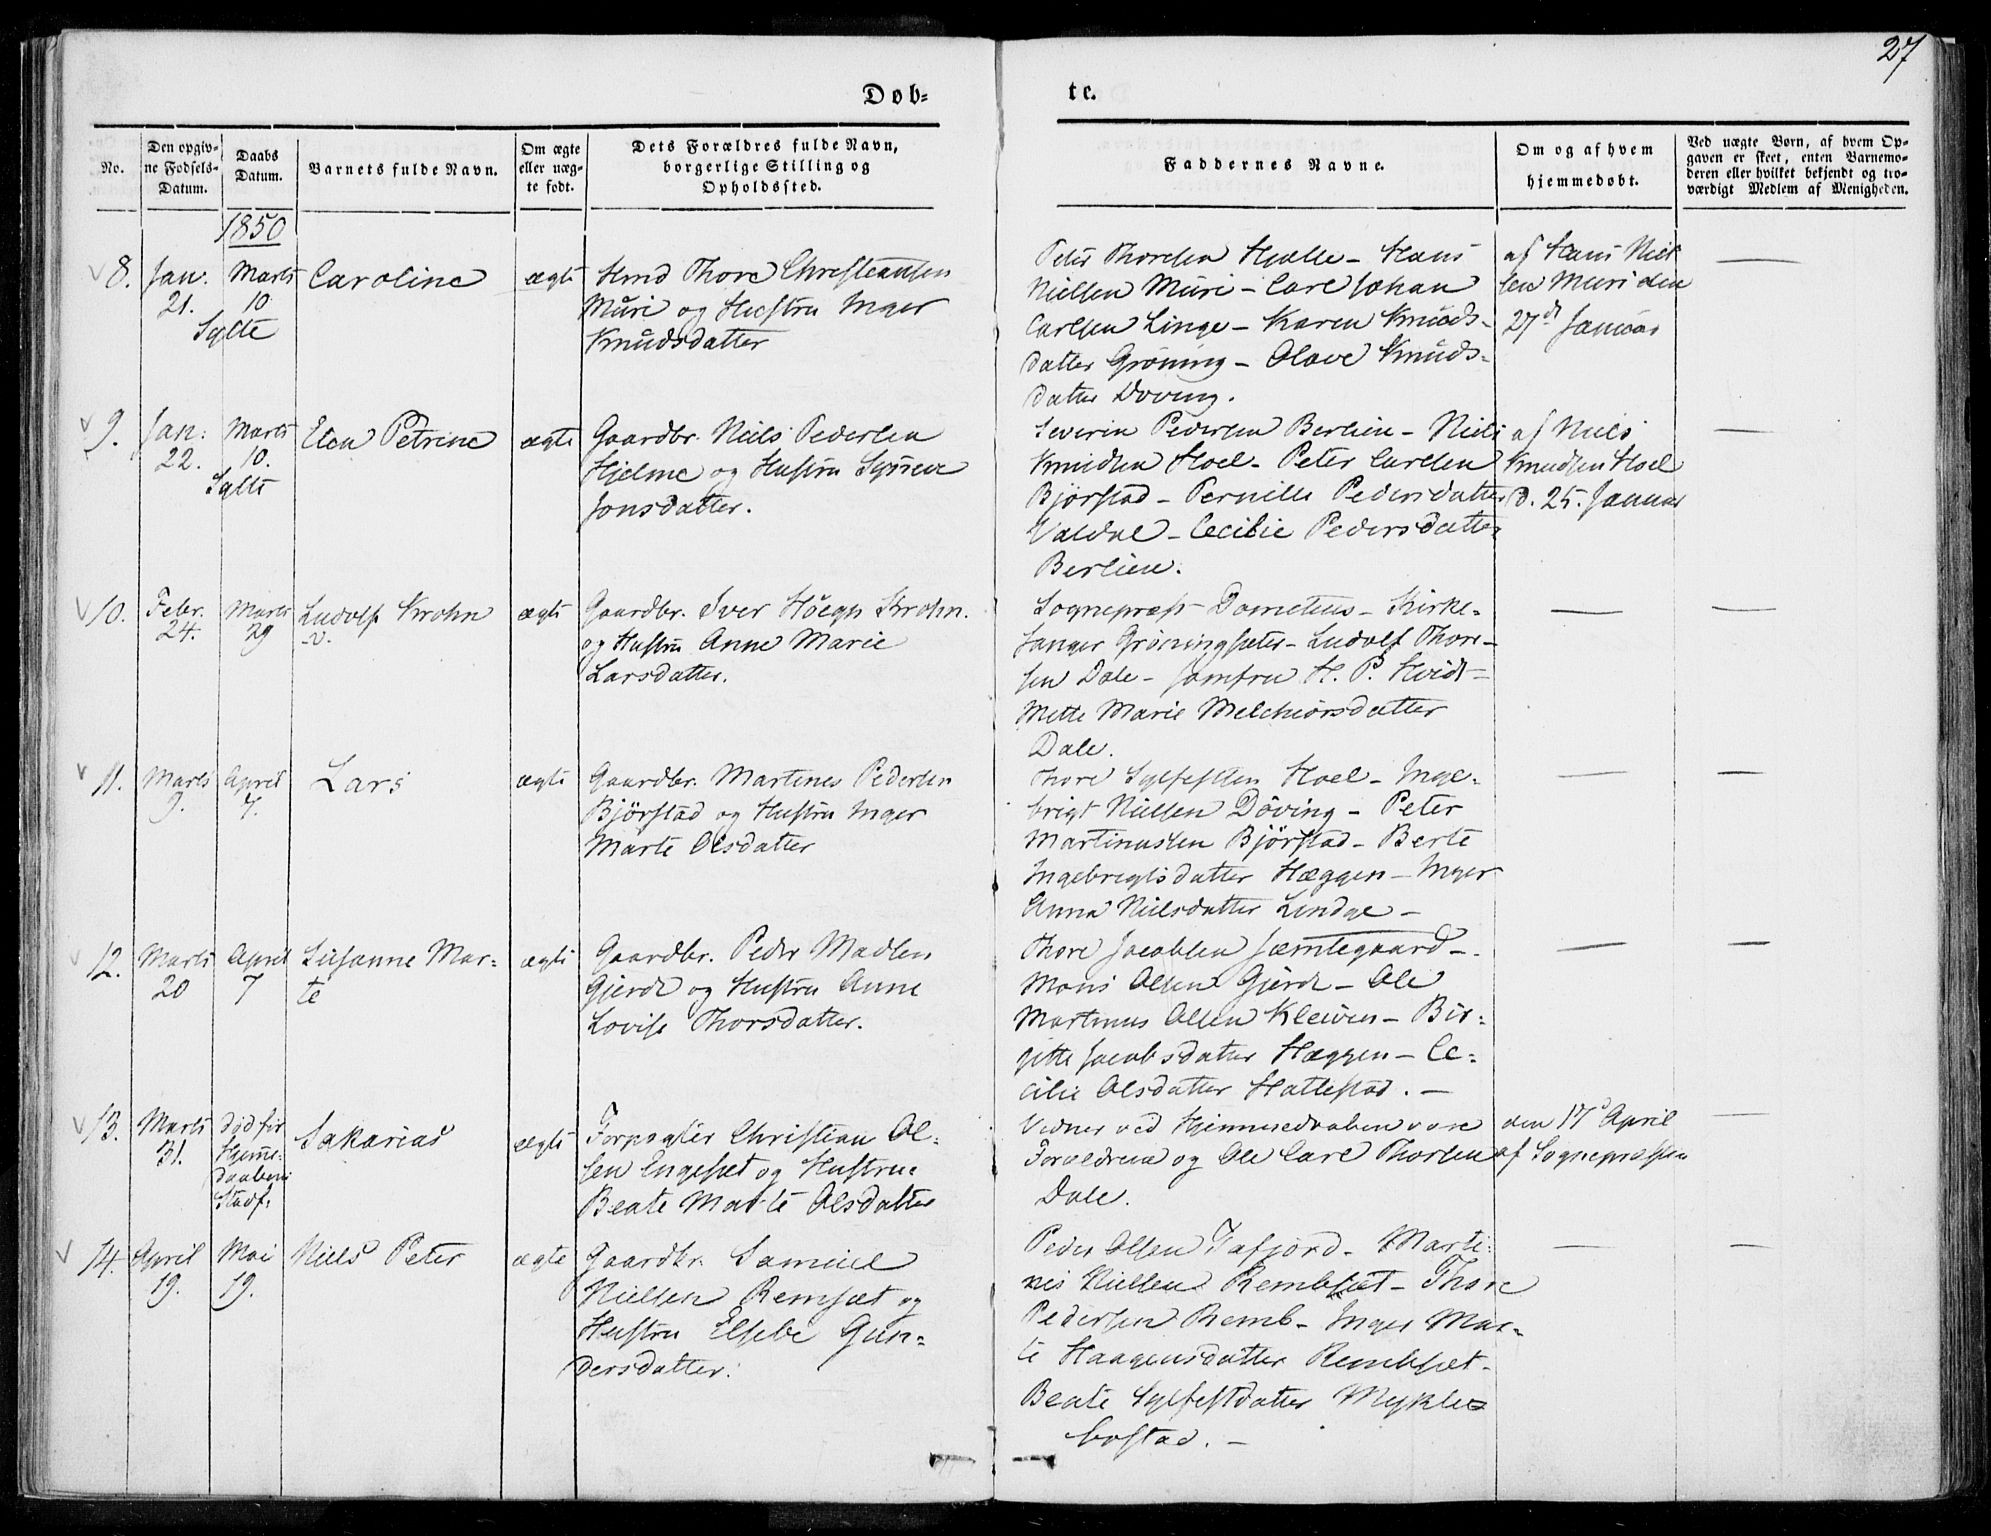 27
Døb-
te.
No.
Den opgiv-
ne Fødsels-
Datum.
Daabs
Datum.
Barnets fulde Navn.
Om ægte
eller uæg-
te født.
Dets Forældres fulde Navn,
borgerlige Stilling og
Opholdssted.
Faddernes Navne.
Om og af hvem
hjemmedøbt.
Ved uægte Børn, af hvem Op-
gaven er skeet, enten Barnemo-
deren eller hvilket bekjendt og tro-
værdigt Medlem af Menigheden.
1850
8.
Jan.
21.
Marts
10
Sylte
Caroline
ægte
Thore Christiansen
Muri og Hustru Inger
Knudsdatter
Peter Thoresen Hjelle - Hans
Nielsen Muri - Carl Johan
Carlsen Linge - Karen Knuds-
datter Grøning - Olave Knuds-
datter Døving.
af Hans Niel
sen Muri den
27d Januar
9.
Jan:
22.
Marts
10.
Sylte
Elen Petrine
ægte
Gaardbr. Niels Pedersen
Hjelme og Hustru Synneve
Jonsdatter.
Severin Pedersen Berlien - Niels
Knudsen Hoel - Peter Carlsen
Bjørstad - Pernille Pedersdatter
Valdal - Cecilie Pedersdatter
Berlien.
af Niels
Knudsen Hoel
d. 25. Januar
10.
Febr.
24.
Marts
29
Ludolf Krohn
v.
ægte
Gaardbr. Iver Høegh Krohn.
og Hustru Anne Marie
Larsdatter.
Sognepræst Dometius - Kirke-
sanger Grøningsæter - Ludolf Thore-
sen Dale - Jomfru H. P. Hvidt -
Mette Marie Melchiorsdatter
Dale.
11.
Marts
9.
April
7.
Lars
ægte
Gaardbr. Martinus Pedersen
Bjørstad og Hustru Inger
Marte Olsdatter
Thore Sylfestsen Hoel - Inge-
brigt Nielsen Døving - Peter
Martinussen Bjørstad - Berte
Ingebrigtsdatter Hæggen - Inger
Anna Nielsdatter Lindge -
12.
Marts
20
April
7
Susanne Mar-
te
ægte
Gaardbr. Peder Madsen
Gjerde og Hustru Anne
Lovise Thorsdatter.
Thore Jacobsen Jæmtegaard -
Mons Olsen Gjerde - Ole
Martinus Olsen Kleiven - Bir-
gitte Jacobsdatter Hæggen - Ce-
cilie Olsdatter Hattestad. -
13.
Marts
31.
død før
Hjemme-
daabens
Stadf.
Sakarias
ægte
Forpagter Christian Ol-
sen Engeset og Hustru
Beate Marte Olsdatter
Vidner ved Hjemmedaaben vare
Forældrene og Ole Carl Thorsen
Dale.
den 17d April
af Sognepræsten
14.
April
19.
Mai
19.
Niels Peter
ægte
Gaardbr. Samuel
Nielsen Remsæt og
Hustru Elsebe Gun-
dersdatter.
Peder Olsen Tafjord - Marti-
nus Nielsen Rembsæt - Thore
Pedersen Remb - Inger Mar-
te Haagensdatter Rembsæt -
Beate Sylfestdatter Mykle-
bostad. -